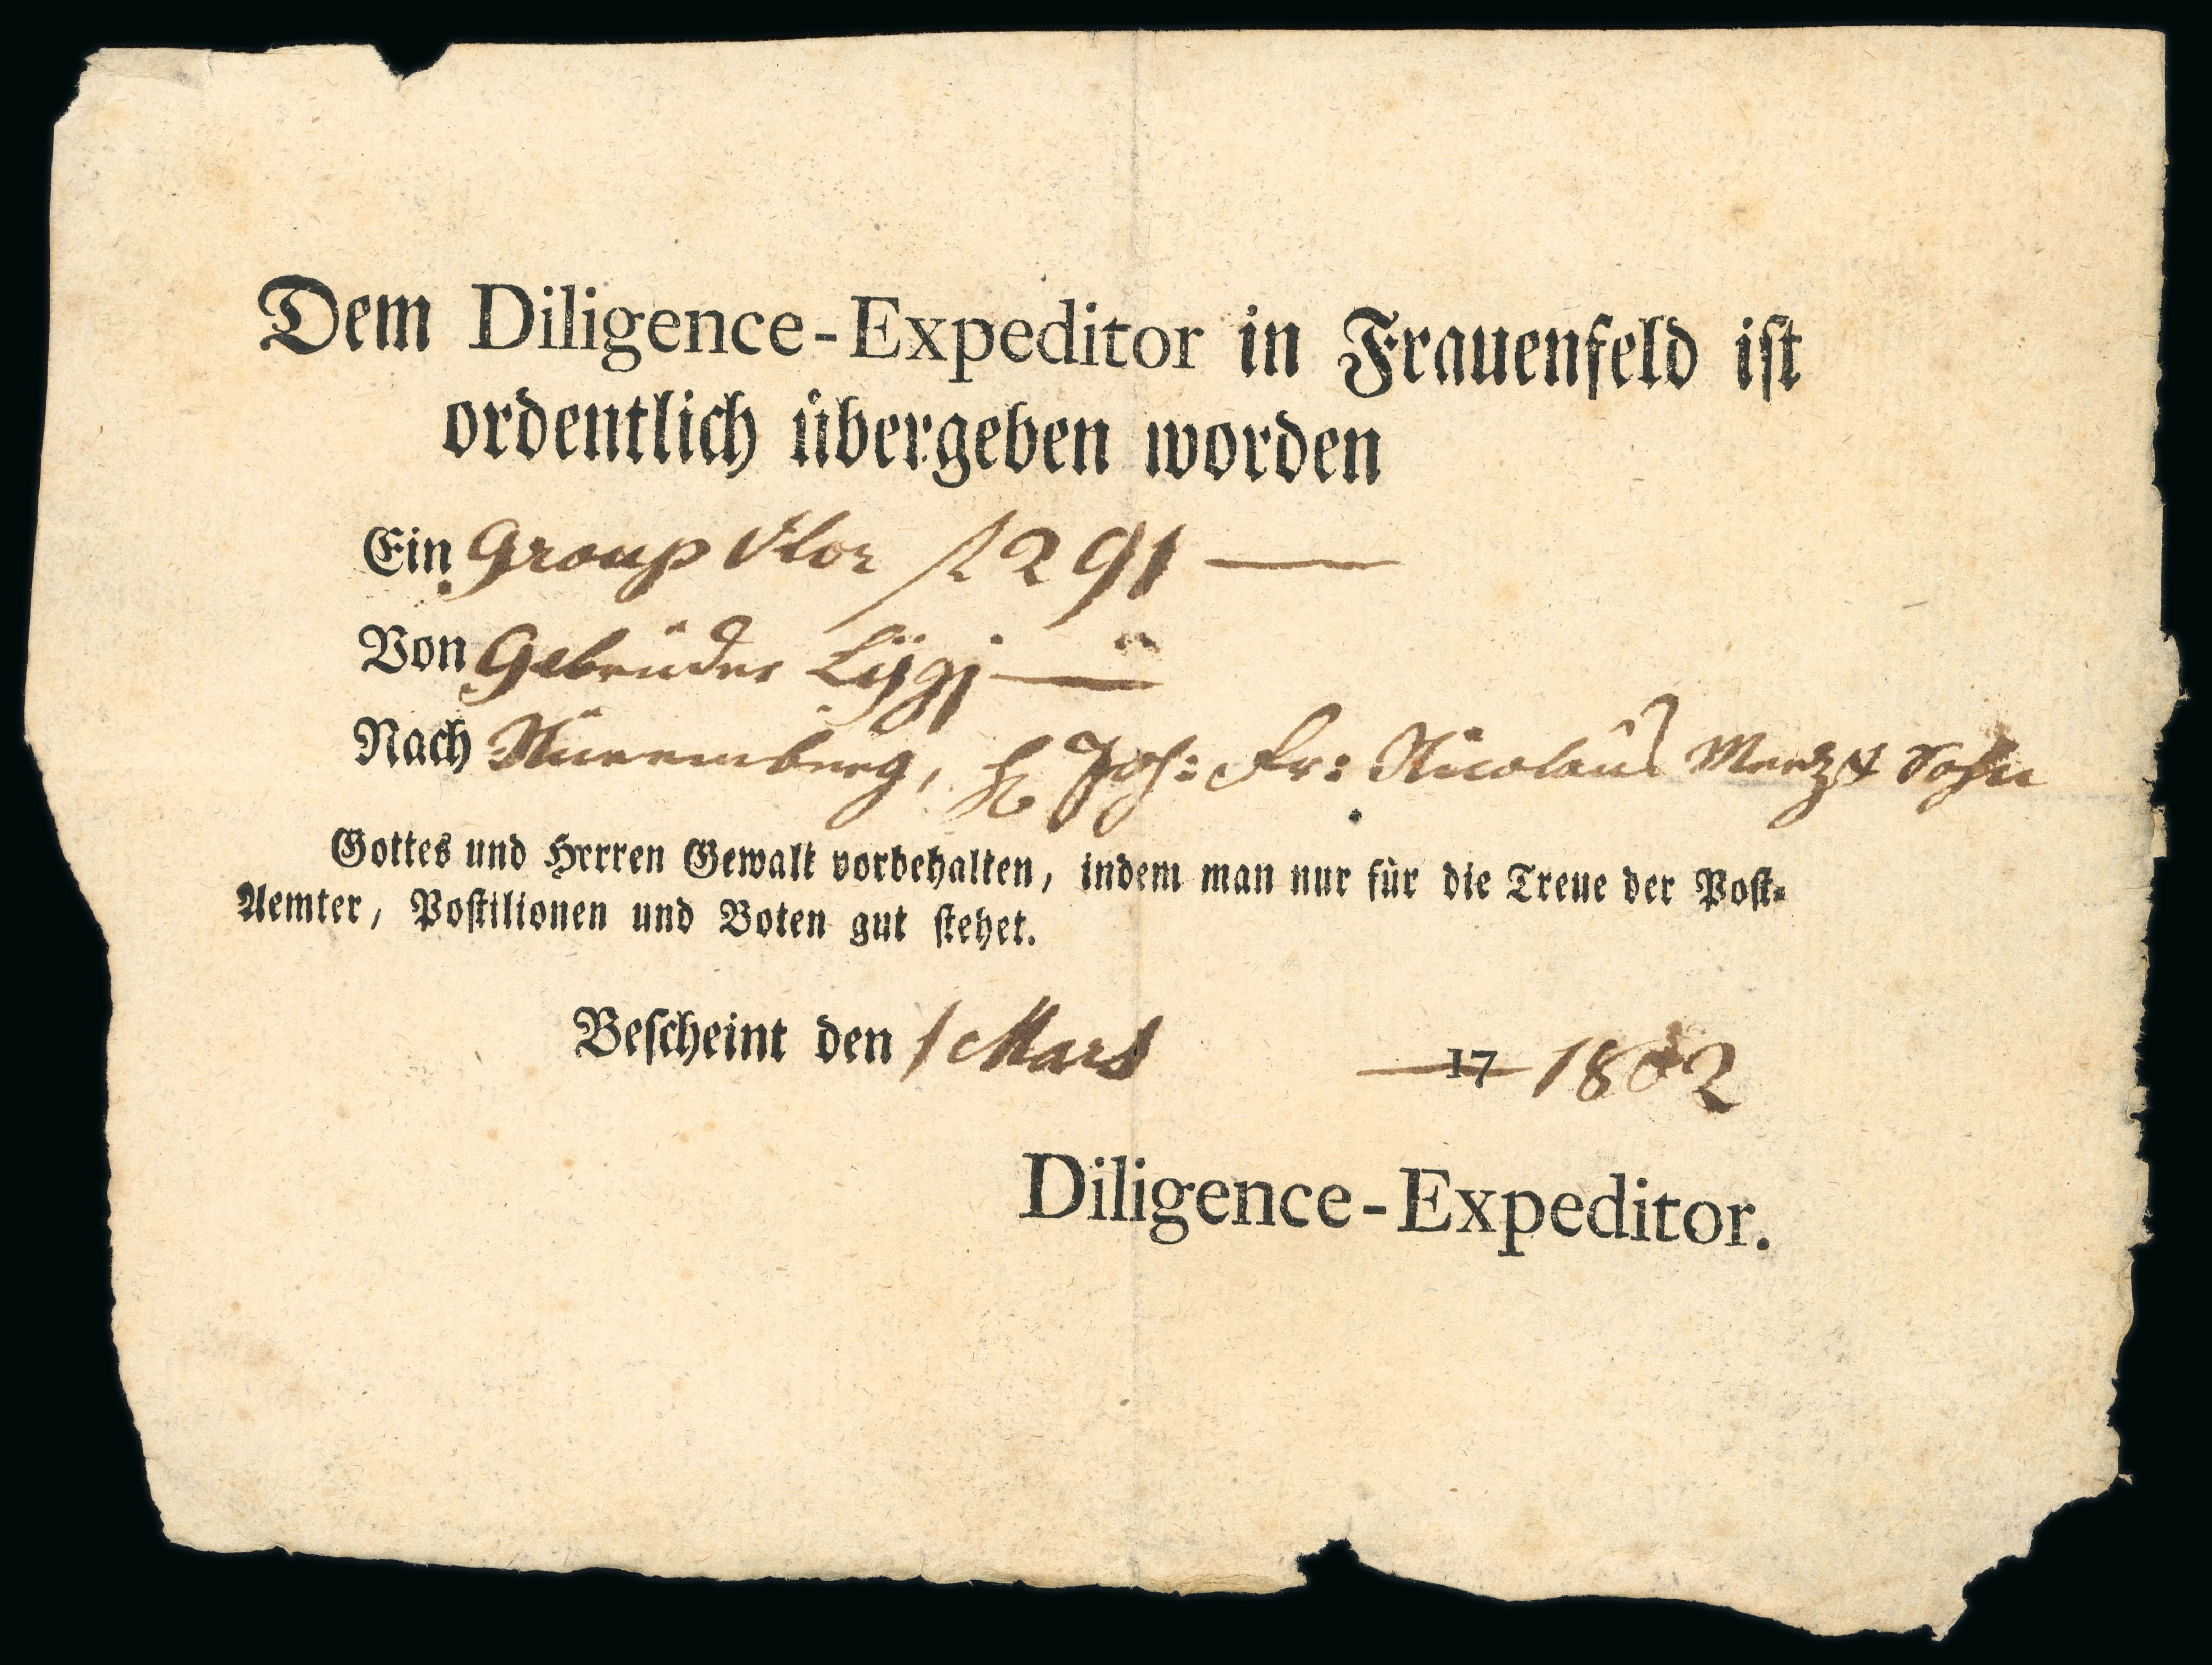 Dem Diligence-Expeditor in Frauenfeld ist
ordentlich übergeben worden
Ein Group 1291
Von Gebrüder
Nach Nüremberg, H Joh: Fr: Nicolaus Merz & Sohn
Gottes und Herrren Gewalt vorbehalten, indem man nur für die Treue der Post-
Aemter, Postilionen und Boten gut stehet.
Bescheint den 1 Mars 17 1802
Diligence-Expeditor.